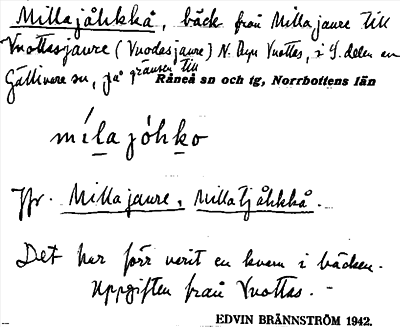 Millajåhkkå, bäck från Millajaure till
Vuottasjaure (Vuodasjaure) N. Byn Vuottas, i S. delen av
Gällivare sn, på gränsen till
Råneå sn och tg, Norrbottens län
mílajóhko
Jfr. Millajaure, Millatjåhkkå.
Det har förr varit en kvarn i bäcken.
Uppgiften från Vuottas. -
EDVIN BRÄNNSTRÖM 1942.